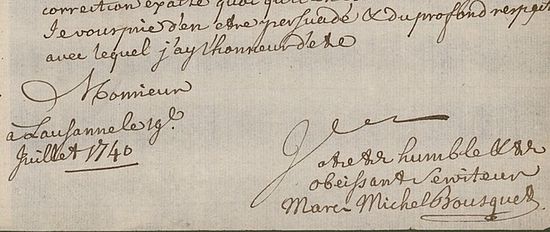 correction exacte quoi qu'il
Je vous prie d'en etre persuadé & du profond respect
avec lequel j'ay l'honneur d'etre
Monsieur
à Lausanne le 19e.
Juillet 1740
Votre tr humble & tr
obeissant Serviteur
Marc Michel Bousquet